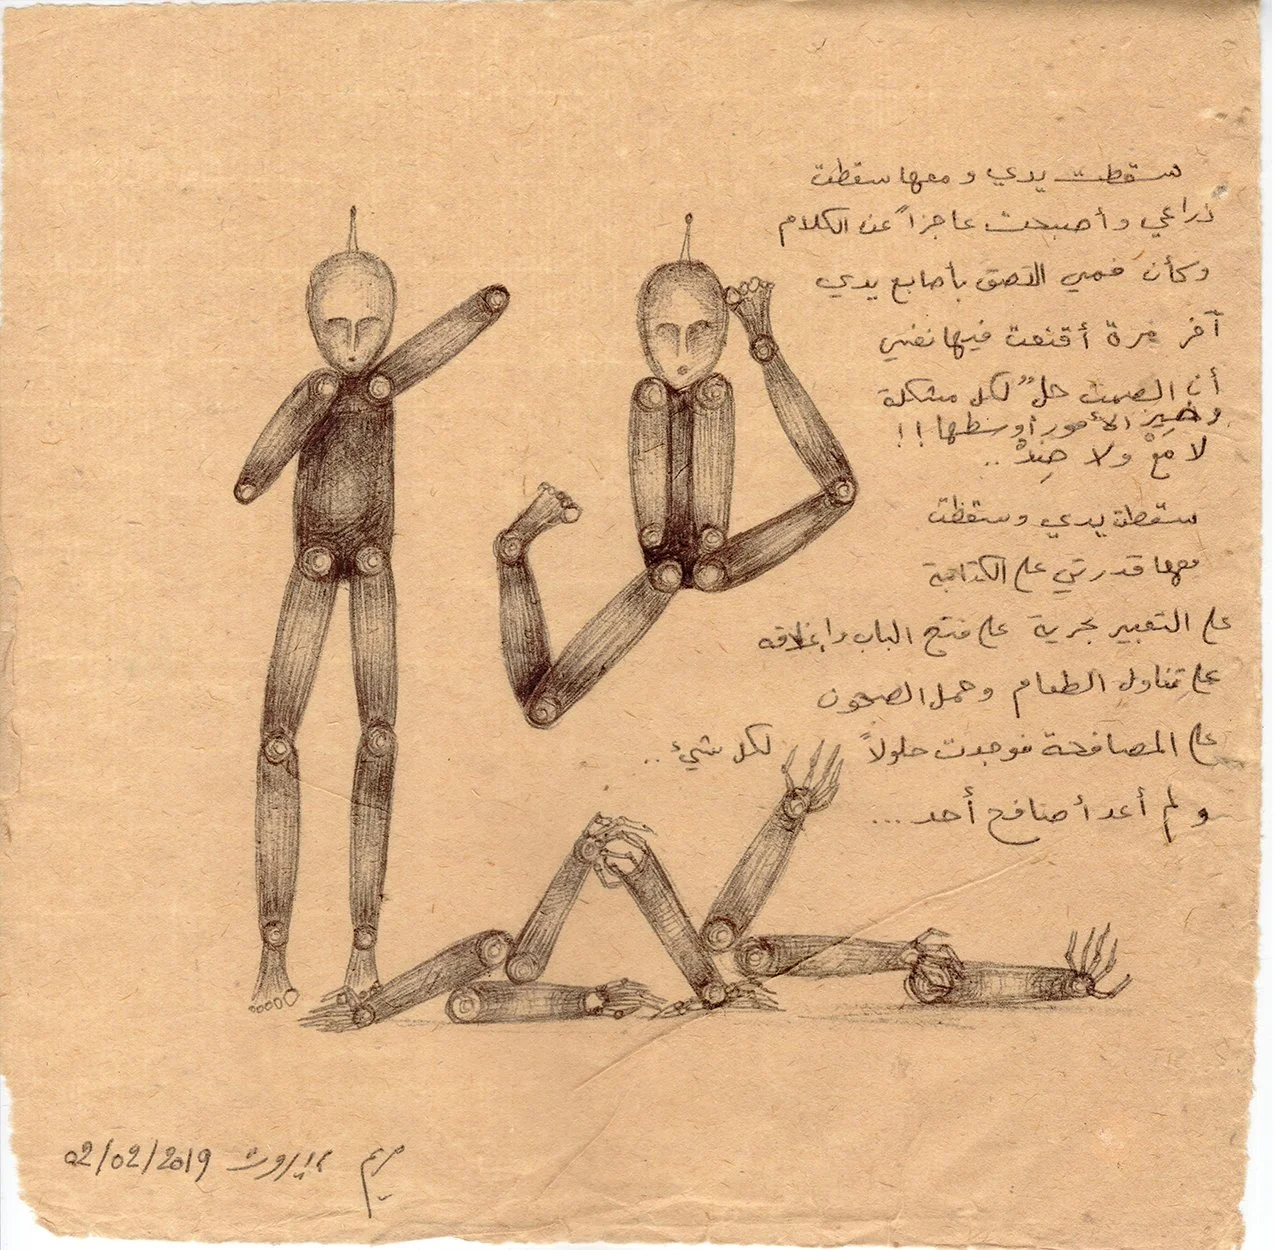 سقطت يدي و معها سقطت
ذراعي وأصبحت عاجزاً عن الكلام
وكأن فمي التصق بأصابع يدي
آخر مرة أقنعت فيها نفسي
أن الصمت حلٌ لكل مشكلة
وخير الأمور أوسطها!!
لا مع ولا ضد..
سقطت يدي وسقطت
معها قدرتي على الكتابة
على التعبير بحرية على فتح الباب وإغلاقه
على تناول الطعام وحمل الصحون
على المصافحة فوجدت حلولاً لكل شيء..
و لم أعد أصافح أحد...
مريم بيروت 02/02/2019